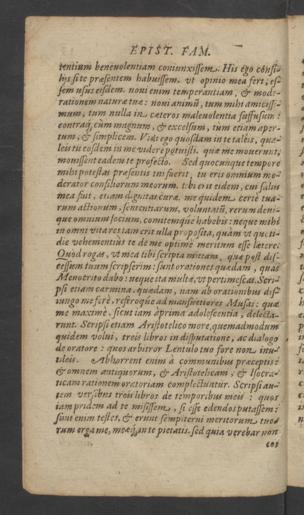 EPIST. FAM.
tentium beneuolentiam coniunxissem. His ego cōsi-
lijs si te præsentem habuissem, vt opinio mea fert, es-
sem vsus eisdem. noui enim temperantiam, & mode-
rationem naturæ tuæ: noui animū, tum mihi amicissi-
mum, tum nulla in cæteros maleuolentia suffusum:
contraq́, cùm magnum, & excelsum, tum etiam aper-
tum, & simplicem. Vidi ego quosdam in te tales, qua-
leis tu eosdem in me videre potuisti. quæ me mouerunt,
mouissent eadem te profecto. Sed quocunque tempore
mihi potestas præsentis tui fuerit, tu eris omnium mo-
derator consiliorum meorum. tibi erit eidem, cui salus
mea fuit, etiam dignitas curæ. me quidem certè tua-
rum actionum, sententiarum, voluntatū, rerum deni-
que omnium socium, comitemque habebis: neque mihi
in omni vita res tam erit vlla proposita, quàm vt quoti-
die vehementius te de me optimè meritum esse lætere.
Quòd rogas, vt mea tibi scripta mittam, quæ post dis-
cessum tuum scripserim: sunt orationes quædam, quas
Menocrito dabo: neque ita multæ, vt pertimescas. Scri-
psi etiam carmina quædam, nam ab orationibus dis-
iungo me ferè, referoque ad mansuetiores Musas: quæ
me maximè, sicut iam à prima adolescentia, delecta-
runt. Scripsi etiam Aristotelico more, quemadmodum
quidem volui, treis libros in disputatione, ac dialogo
de oratore: quos arbitror Lentulo tuo fore non inu-
tileis. Abhorrent enim à communibus præceptis:
& omnem antiquorum, & Aristoteleam, & Isocra-
ticam rationem oratoriam complectuntur. Scripsi au-
tem versibus treis libros de temporibus meis: quos
iam pridem ad te misissem, si esse edendos putassem:
sunt enim testes, & erunt sempiterni meritorum tuo-
rum erga me, meæq́ue pietatis. sed quia verebar non
eos